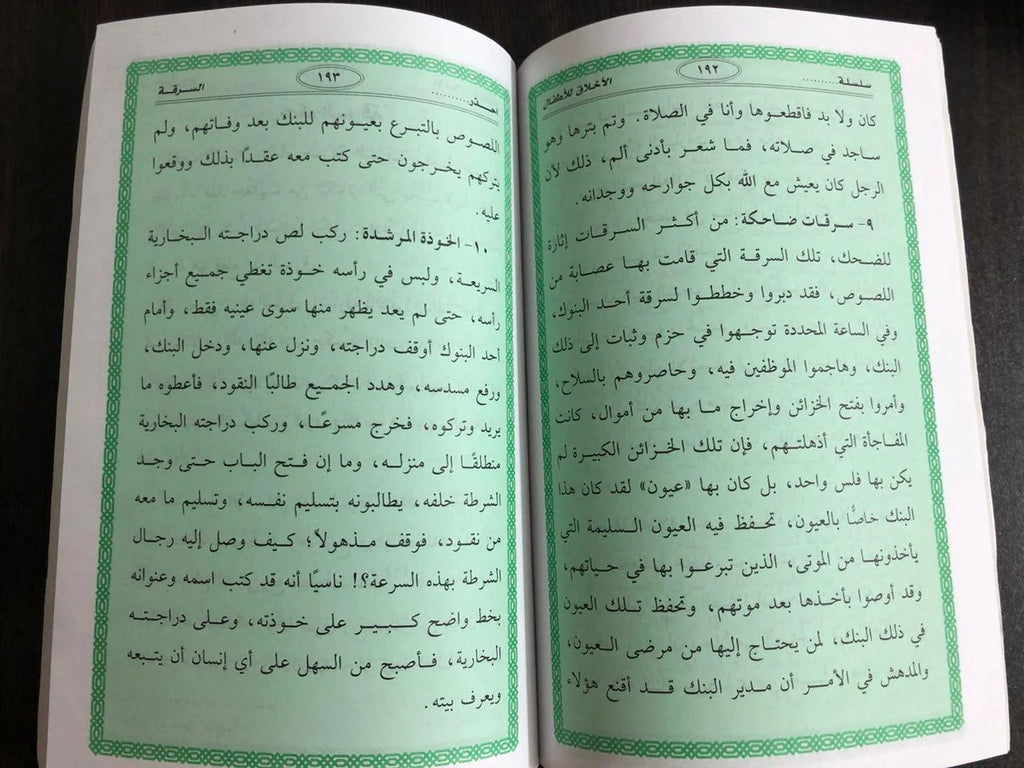 سلسلة..........
١٩٢
الأخلاق للأطفال
كان ولا بد فاقطعوها وأنا في الصلاة. وتم بترها وهو
ساجد في صلاته، فما شعر بأدنى ألم، ذلك لأن
الرجل كان يعيش مع الله بكل جوارحه ووجدانه.
٩- سرقات ضاحكة: من أكثر السرقات إثارة
للضحك، تلك السرقة التي قامت بها عصابة من
اللصوص، فقد دبروا وخططوا لسرقة أحد البنوك،
وفي الساعة المحددة توجهوا في حزم وثبات إلى ذلك
البنك، وهاجموا الموظفين فيه، وحاصروهم بالسلاح،
وأمروا بفتح الخزائن وإخراج ما بها من أموال، كانت
المفاجأة التي أذهلتهم، فإن تلك الخزائن الكبيرة لم
يكن بها فلس واحد، بل كان بها «عيون» لقد كان هذا
البنك خاصًّا بالعيون، تحفظ فيه العيون السليمة التي
يأخذونها من الموتى، الذين تبرعوا بها في حياتهم،
وقد أوصوا بأخذها بعد موتهم، وتحفظ تلك العيون
في ذلك البنك، لمن يحتاج إليها من مرضى العيون،
والمدهش في الأمر أن مدير البنك قد أقنع هؤلاء
احذر..........
١٩٣
السرقة
اللصوص بالتبرع بعيونهم للبنك بعد وفاتهم، ولم
يتركهم يخرجون حتى كتب معه عقدًا بذلك ووقعوا
عليه.
١٠- الخوذة المرشدة: ركب لص دراجته البخارية
السريعة، ولبس في رأسه خوذة تغطي جميع أجزاء
رأسه، حتى لم يعد يظهر منها سوى عينيه فقط، وأمام
أحد البنوك أوقف دراجته، ونزل عنها، ودخل البنك،
ورفع مسدسه، وهدد الجميع طالبًا النقود، فأعطوه ما
يريد وتركوه، فخرج مسرعًا، وركب دراجته البخارية
منطلقًا إلى منزله، وما إن فتح الباب حتى وجد
الشرطة خلفه، يطالبونه بتسليم نفسه، وتسليم ما معه
من نقود، فوقف مذهولاً؛ كيف وصل إليه رجال
الشرطة بهذه السرعة؟! ناسيًا أنه قد كتب اسمه وعنوانه
بخط واضح كبير على خوذته، وعلى دراجته
البخارية، فأصبح من السهل على أي إنسان أن يتبعه
ويعرف بيته.